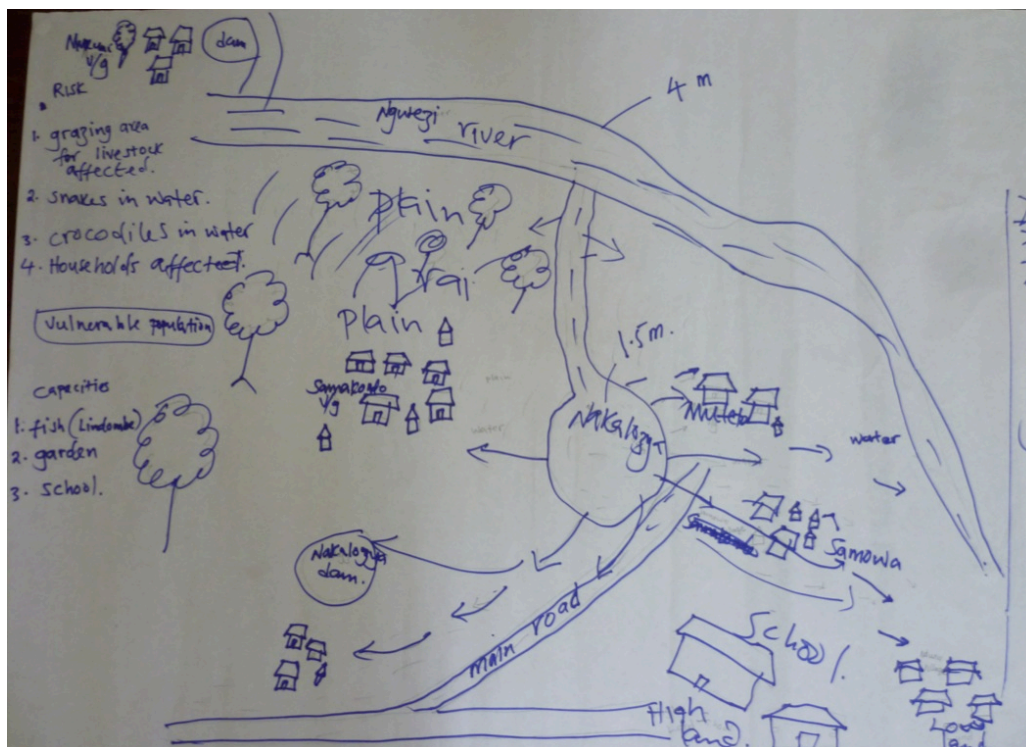 dam
v/g
Risk
1. grazing area
for livestock
affected.
2. snakes in water.
3. crocodiles in water
4. Households affected.
Vulnerable population
Capacities
1. fish (Lindombe)
2. garden
3. School.
Ngwezi river
4 m
plain
plain
v/g
1.5 m.
Nakalozya
water
Samowa
Nakalogya
dam.
main road
School
High
land.